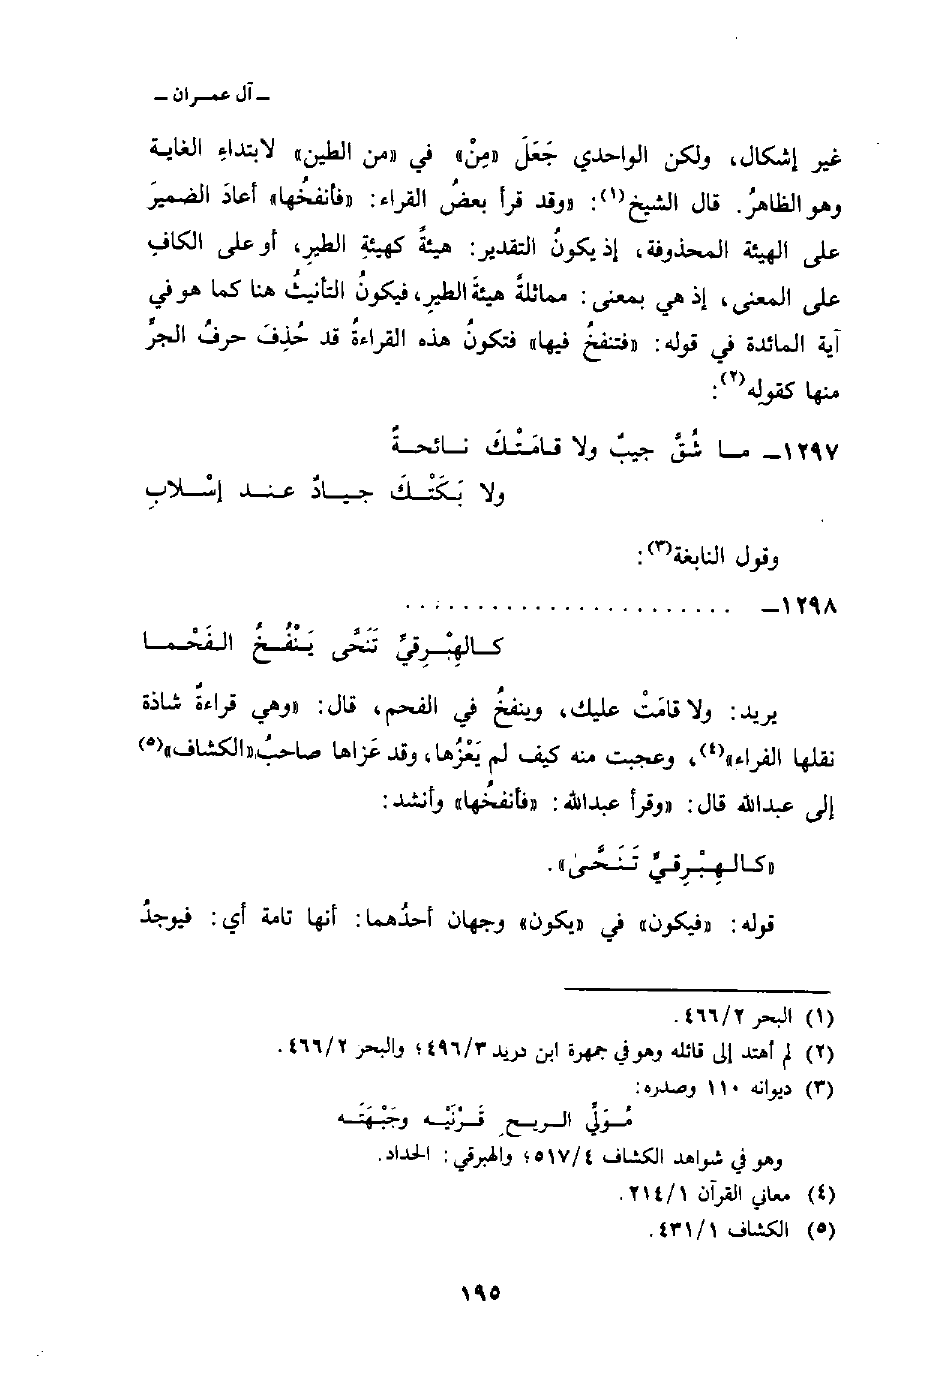 ـ آل عمـران ـ
غير إشكال، ولكن الواحدي جَعَلَ «مِنْ» في «من الطين» لابتداءِ الغاية
وهو الظاهرُ. قال الشيخ(١): «وقد قرأ بعضُ القراء: «فأنفخُها» أعادَ الضميرَ
على الهيئة المحذوفة، إذ يكونُ التقدير: هيئةً كهيئةِ الطيرِ، أو على الكافِ
على المعنى، إذ هي بمعنى: مماثلةً هيئةَ الطيرِ، فيكونُ التأنيثُ هنا كما هو في
آية المائدة في قوله: «فتنفخُ فيها» فتكونُ هذه القراءةُ قد حُذِفَ حرفُ الجرِّ
منها كقولِه(٢):
١٢٩٧ـ مـا شُقَّ جيبٌ ولا قـامَتْكَ نـائحـةٌ
ولا بَكَتْـكَ جيـادٌ عنـد إسْـلابِ
وقول النابغة(٣):
١٢٩٨ـ . . . . . . . . . . . . . . . . . . . . . . .
كـالهِبْـرِقيِّ تَنَحَّى يَنْفُـخُ الفَحْمـا
يريد: ولا قامَتْ عليك، وينفخُ في الفحم، قال: «وهي قراءةٌ شاذة
نقلها الفراء»(٤)، وعجبت منه كيف لم يَعْزُها، وقد عَزاها صاحبُ «الكشاف»(٥)
إلى عبدالله قال: «وقرأ عبدالله: «فأنفخُها» وأنشد:
«كـالهِبْـرِقيِّ تَنَحَّىٰ».
قوله: «فيكون» في «يكون» وجهان أحدُهما: أنها تامة أي: فيوجدُ
(١) البحر ٤٦٦/٢.
(٢) لم أهتد إلى قائله وهو في جمهرة ابن دريد ٤٩٦/٣؛ والبحر ٤٦٦/٢.
(٣) ديوانه ١١٠ وصدره:
مُـوَلِّيَ الـريـحِ قَـرْنَيْـه وجَبْهَتَـه
وهو في شواهد الكشاف ٥١٧/٤؛ والهبرقي: الحداد.
(٤) معاني القرآن ٢١٤/١.
(٥) الكشاف ٤٣١/١.
١٩٥